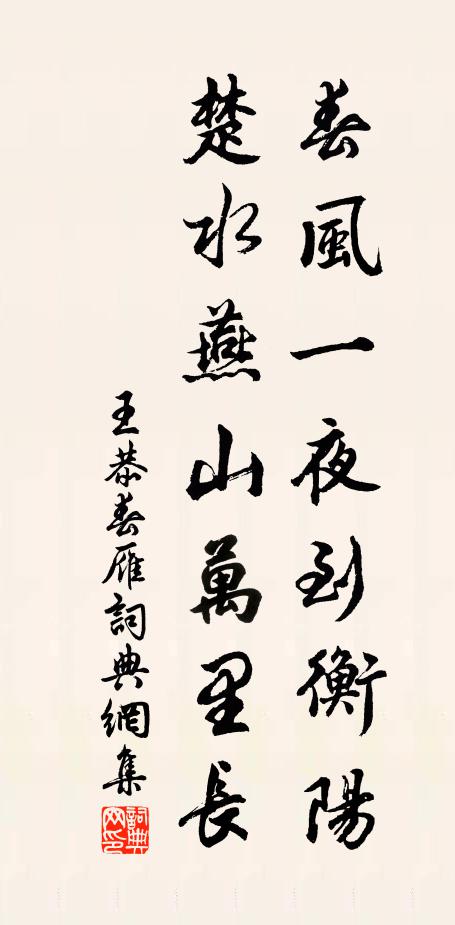 春風一夜到衡陽
楚水燕山萬里長
王恭春雁詞典網集
詞典網印